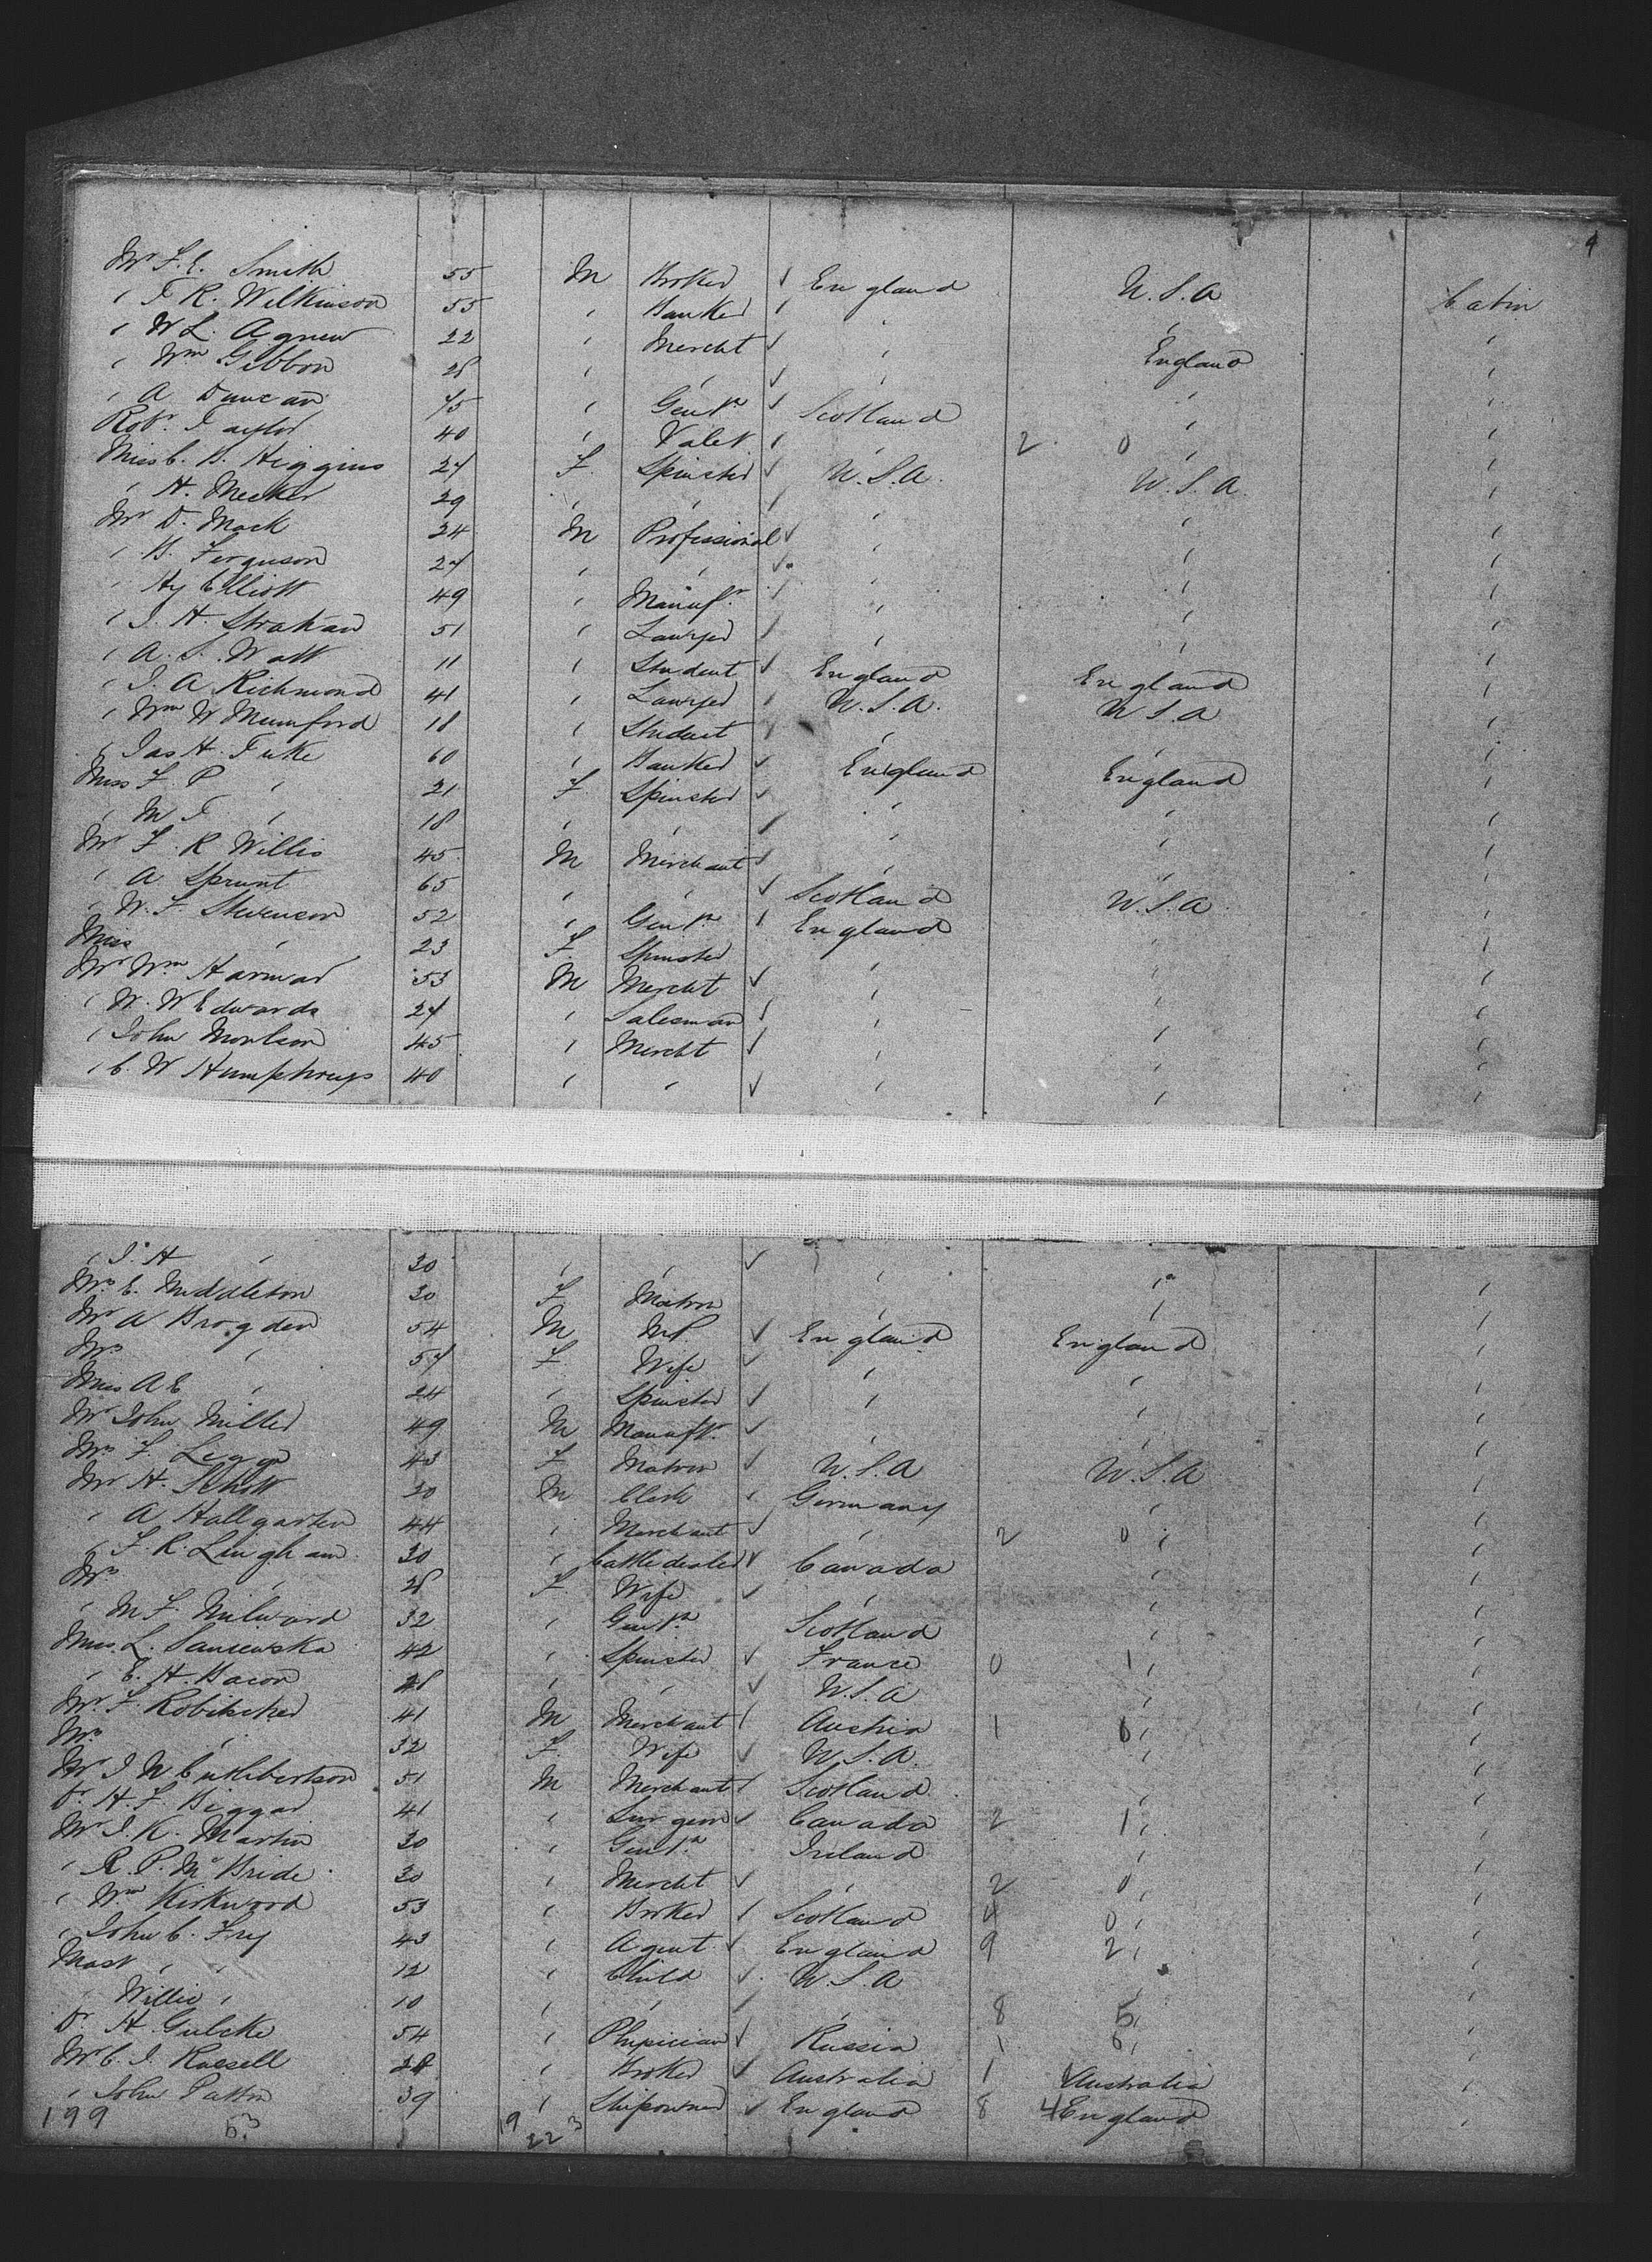 4
Mr F. E. Smith 55 M Broker England U.S.A Cabin
" T R. Wilkinson 55 " Banker " " "
" W L. Agnew 22 " Mercht " England "
" Wm Gibbon 28 " " " " "
" A Duncan 45 " Gent. Scotland " "
Robt. Taylor 40 " Valet " 2 0 " "
Miss C. B. Higgins 27 F. Spinster U.S.A. U.S.A. "
" H. Meeker 29 " " " " "
Mr D. Mack 24 M Professional " " "
" B. Ferguson 27 " " " " "
" Hy Elliott 49 " Manufr. " " "
" J. H. Strahan 51 " Lawyer " " "
" A. S. Watt 11 " Student England England "
" J. A Richmond 41 " Lawyer U.S.A. U.S.A "
" Wm W Mumford 18 " Student " " "
" Jas H. Tuke 60 " Banker England England "
Miss F. P " 21 F. Spinster " " "
" M T. " 18 " " " " "
Mr F. R Willis 45 M Merchant " " "
" A Sprunt 65 " " Scotland U.S.A. "
" W. F. Stevenson 52 " Gent. England " "
Miss " 23 F. Spinster " " "
Mr Wm Harwar 53 M Mercht " " "
" W. W Edwards 27 " Salesman " " "
" John 45 " Mercht " " "
" C. W Humphreys 40 " " " " "
" J. H " 30 " " " " "
Mrs. E. Middleton 30 F Matron " " "
Mr A Brogden 54 M M.P. England England "
Mrs " 57 F. Wife " " "
Miss A E " 24 " Spinster " " "
Mr John Miller 49 M Manuft. " " "
Mrs F. Legge 43 F Matron U.S.A U.S.A "
Mr H. Schott 20 M Clerk Germany " "
" A Hallgarten 44 " Merchant " 2 0 " "
" F. R. Lingham 30 " Cattle dealer Canada " "
Mrs " 28 F Wife " " "
" M F. Milward 32 " Gent. Scotland " "
Miss L. 42 " Spinster France 0 1 " "
" E. H. Bacon 28 " " U.S.A " "
Mr. F. Robitschek 41 M Merchant Austria 1 6 " "
Mrs " 32 F. Wife U.S.A. " "
Mr J N Cuthbertson 51 M Merchant Scotland " "
Dr. H. F. Biggar 41 " Surgeon Canada 2 1 " "
Mr J. K. Martin 30 " Gent. Ireland " "
" R. P. McBride 30 " Mercht " 2 0 " "
" Wm Kirkwood 53 " Broker Scotland 4 0 " "
" John C. Fry 43 " Agent England 9 2 " "
Mast " " 12 " Child U.S.A " "
Willie " 10 " " " 8 5 " "
Dr. H Gulcke 54 " Physician Russia 1 6 " "
Mr C. J. Russell 28 " Broker Australia 1 Australia "
" John Patton 39 " Shipowner England 8 4 England "
199 53 19 22 3